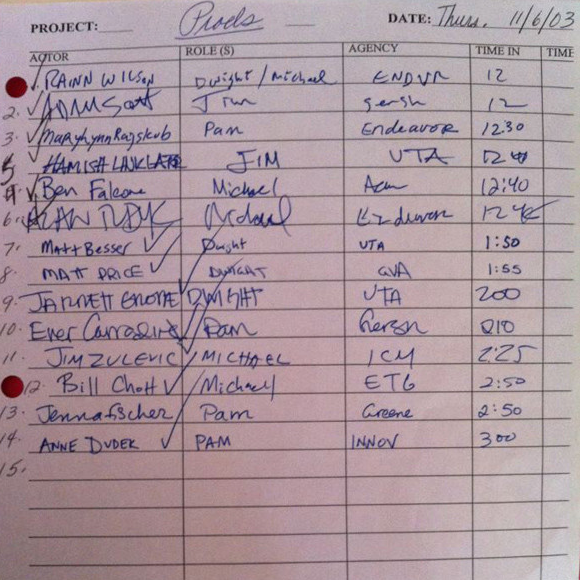 PROJECT: DATE: Thurs. 11/6/03
ACTOR ROLE (S) AGENCY TIME IN TIME
RAINN WILSON Dwight / Michael ENDVR 12
2. ADAM SCOTT Jim gersh 12
3. MaryLynn Rajskub Pam Endeavor 12:30
5 HAMISH LINKLATER JIM UTA
4. Ben Falcone Michael 12:40
6. ALAN TUDYK Michael Endeavor 1245
7. MATT BESSER Dwight UTA 1:50
8. MATT PRICE DWIGHT GVA 1:55
9. DWIGHT UTA 200
10. Ever Carradine Pam Gersh 210
11. JIM ZULEVIC MICHAEL ICM 2:25
12. Bill Chott Michael ETG 2:50
13. Jenna fischer Pam Greene 2:50
14. ANNE DUDEK PAM INNOV 300
15.